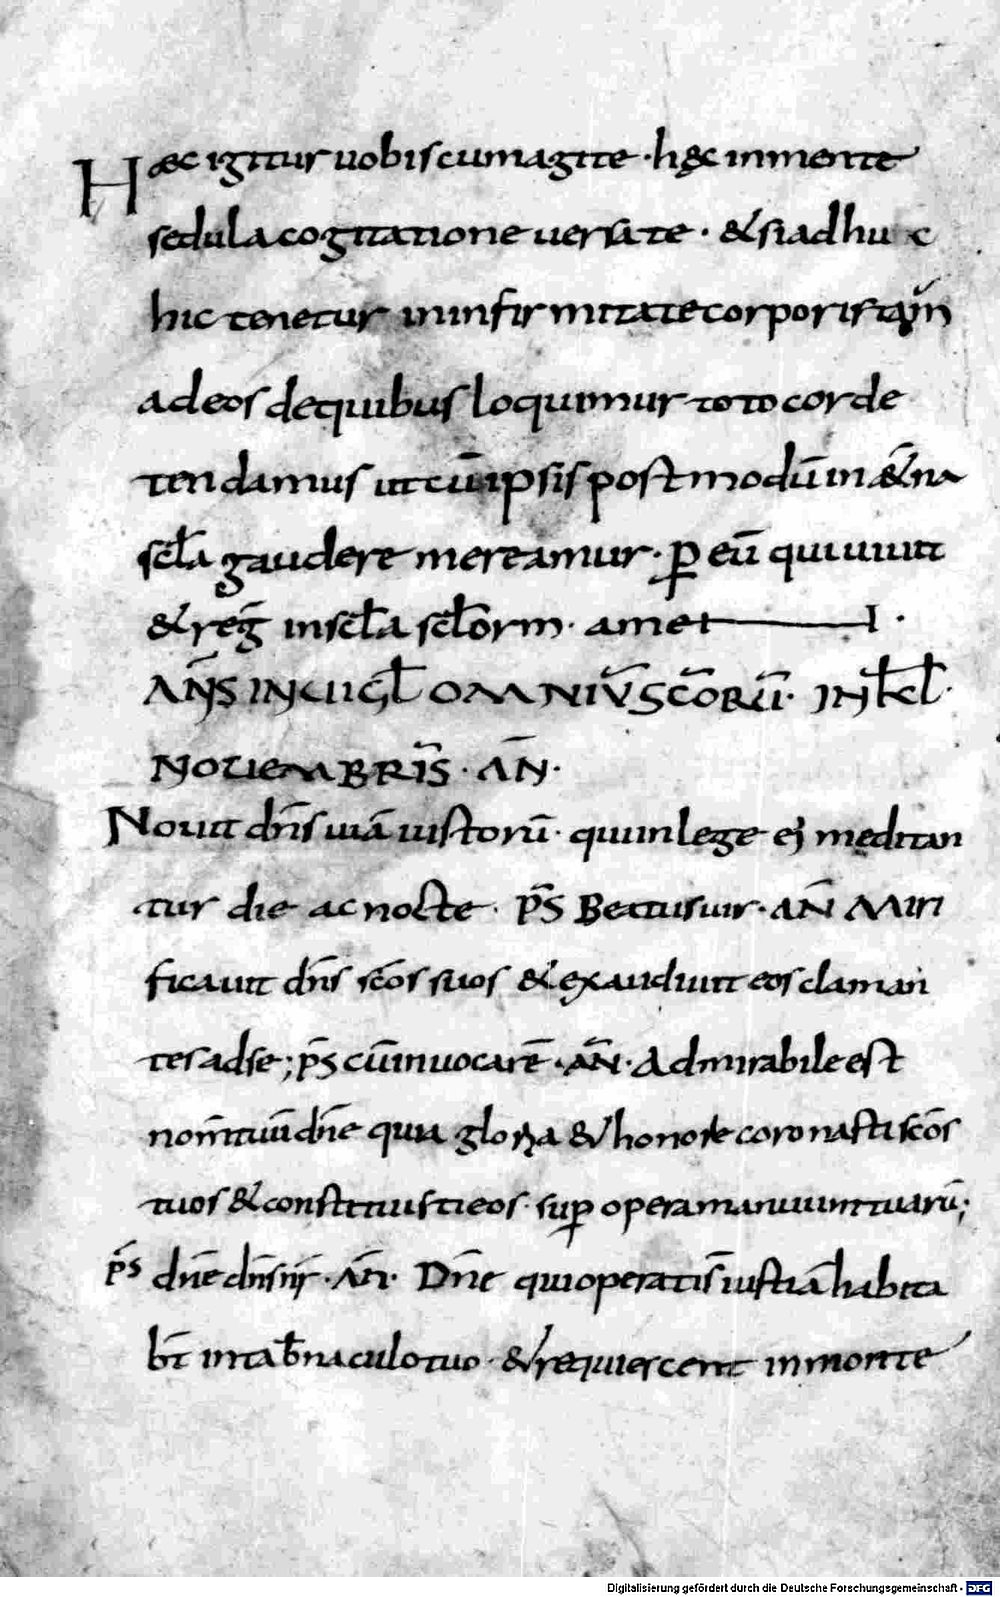 Haec igitur uobiscum agite · hęc in mente
sedula cogitatione uersate · & si adhuc
hic tenetur in infirmitate corporis tam̄
ad eos de quibus loquimur toto corde
tendamus ut cū ipsis postmodū in &̄na
scl̄a gaudere mereamur · ꝑ eū qui uiuit
& reḡ in scl̄a scl̄orm · amen ·
AÑS IN UIGL̄ OMNIŪ SC̄ORŪ · IN KL̄
NOUEMBRIS̄ · AN̄ ·
Nouit dn̄s uiā iustorū · qui in lege ej meditan
tur die ac nocte · ps̄ Beatus uir · AN̄ Miri
ficauit dn̄s sc̄os suos & exaudiuit eos claman
tes ad se ; ps̄ cū inuocarē · AN̄ · Admirabile est
nom̄ tuū dn̄e quia gloria & honore coronasti sc̄os
tuos & constituisti eos · suꝑ opera manuum tuarū ;
ps̄ dn̄e dn̄s nr̄ · AN̄ · Dn̄e qui operatis̄ iustiā habita
bt̄ in tab̄naculo tuo · & requiescent in monte
Digitalisierung gefördert durch die Deutsche Forschungsgemeinschaft - DFG